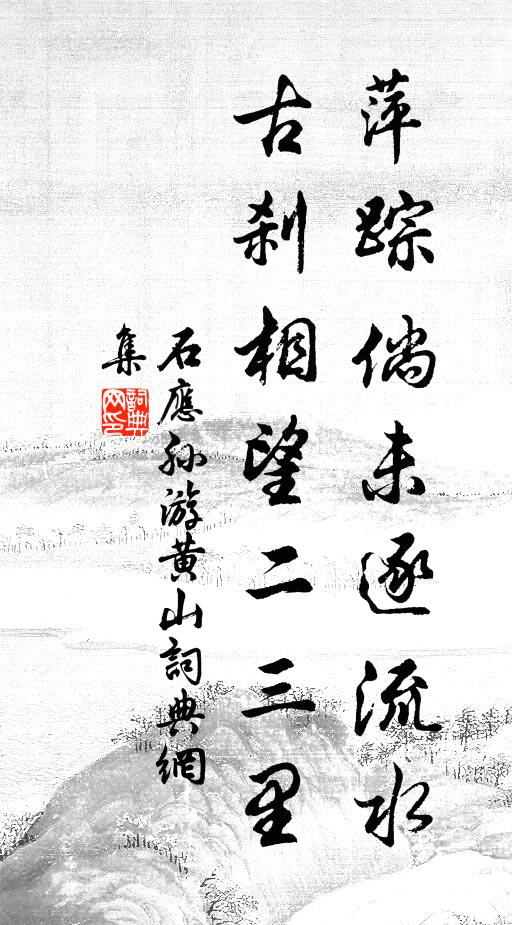 萍踪倘未逐流水
古刹相望二三里
石應孙游黄山詞典網
集
詞典網印